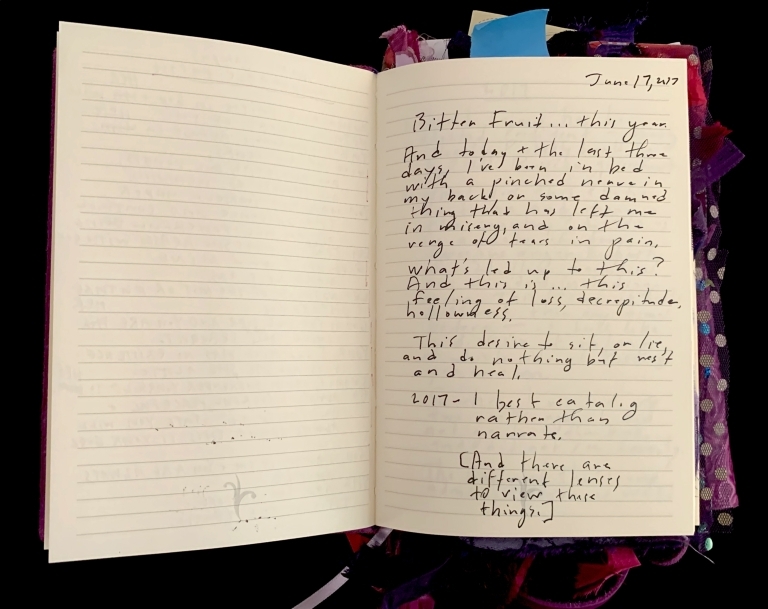 June 17, 2017
Bitter Fruit... this year.
And today + the last three
days, I've been in bed
with a pinched nerve in
my back or some damned
thing that has left me
in misery, and on the
verge of tears in pain.
What's led up to this?
And this is... this
feeling of loss, decrepitude,
hollowness.
This desire to sit, or lie,
and do nothing but rest
and heal.
2017 - I best catalog
rather than
narrate.
[And there are
different lenses
to view these
things.]